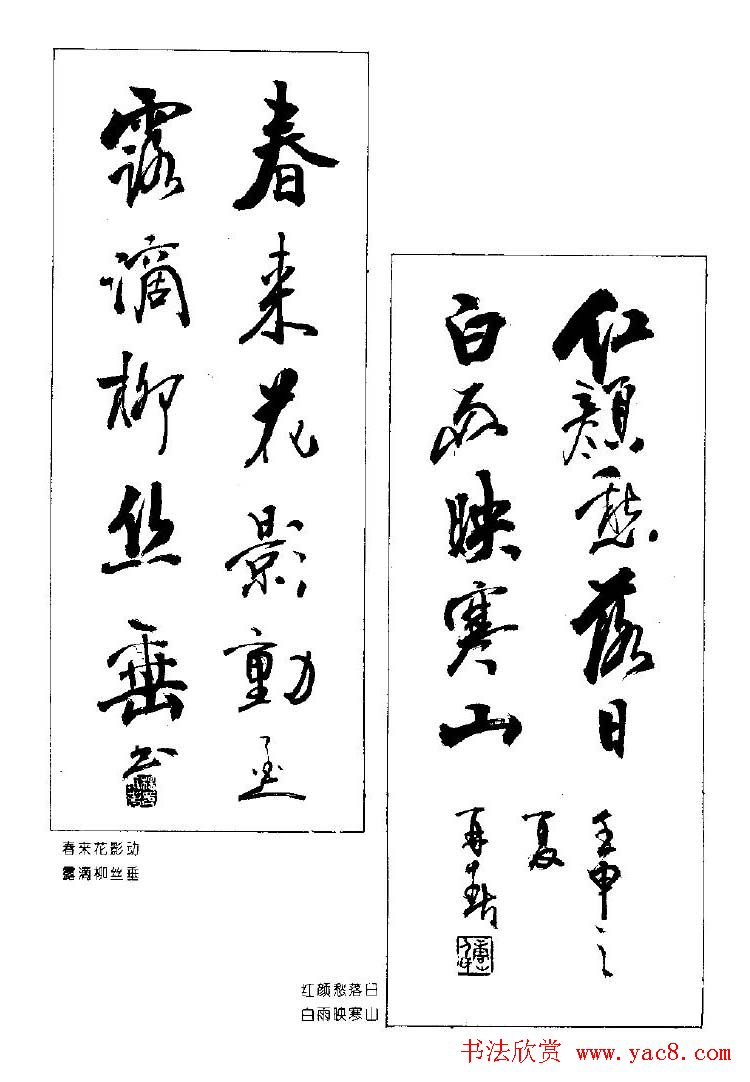 春來花影動
露滴柳丝垂
书
春来花影动
露滴柳丝垂
红颜愁落日
白雨映寒山
壬申之
夏
红颜愁落日
白雨映寒山
书法欣赏 www.yac8.com